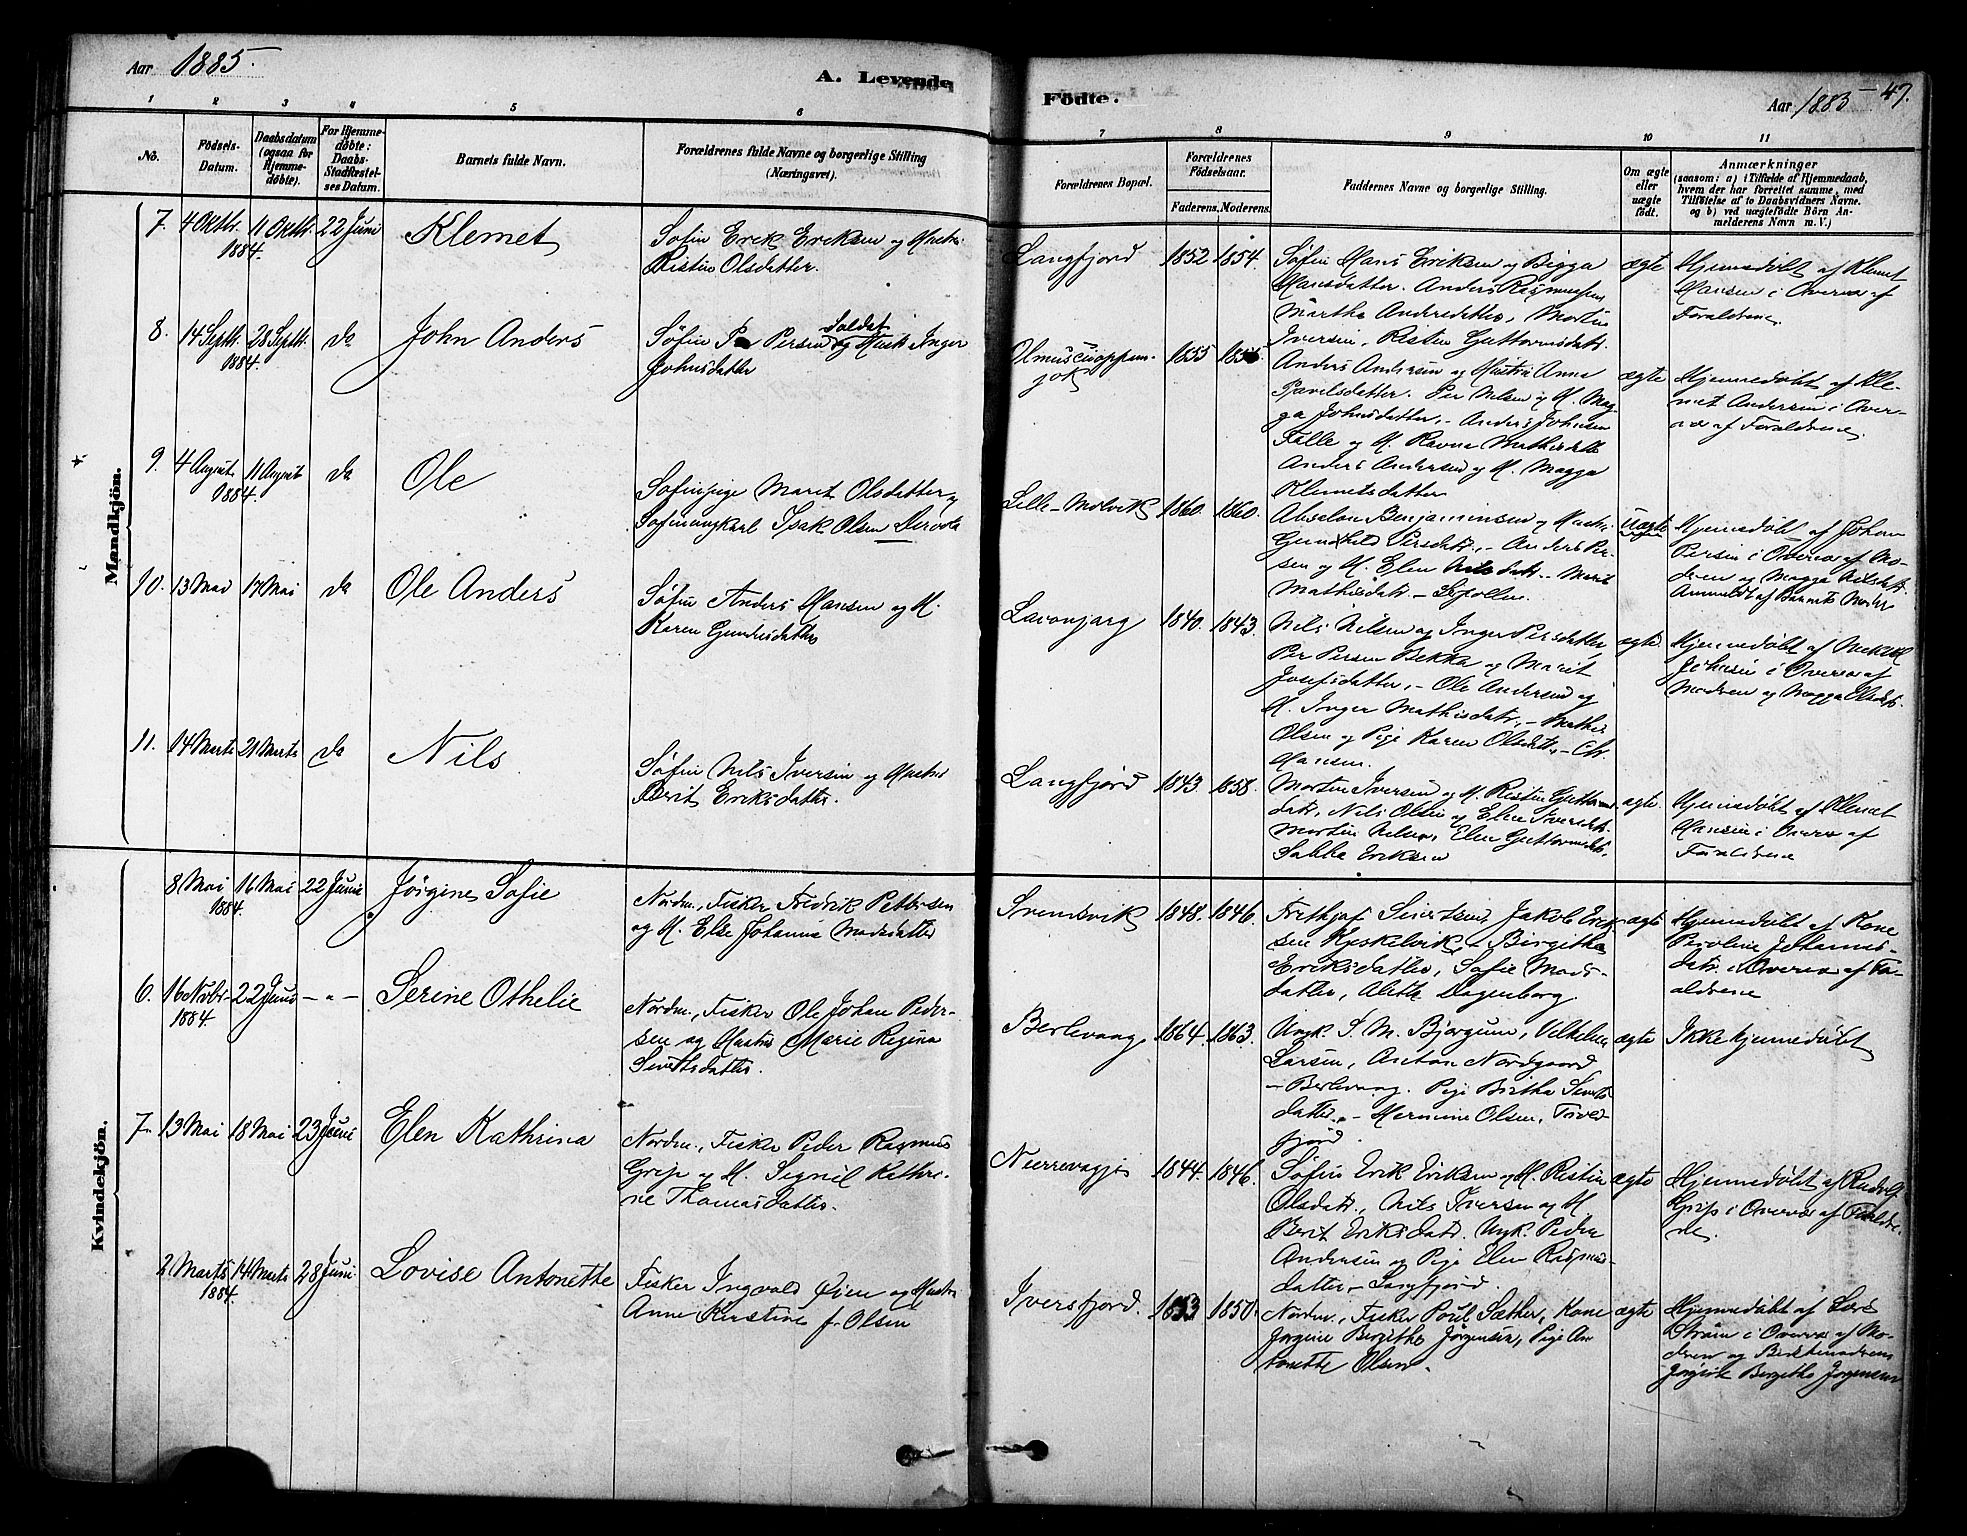 Aar 1885.
A. Levende
Födte.
Aar 1883
47.
1 2 3 4 5 6 7 8 9 10 11
No.
Födsels-Datum.
Daabsdatum (ogsaa for Hjemmedöbte).
For Hjemmedöbte: Daabs-Stadfæstelses Datum.
Barnets fulde Navn.
Forældrenes fulde Navne og borgerlige Stilling (Næringsvei).
Forældrenes Bopæl.
Forældrenes Födselsaar.
Faderens. Moderens.
Faddernes Navne og borgerlige Stilling.
Om ægte eller uægte födt.
Anmærkninger
(saasom: a) i Tilfælde af Hjemmedaab,
hvem der har forrettet samme, med
Tilföielse af to Daabsvidners Navne.
og b) ved uægtefödte Börn Anmelderens Navn m. V.)
Mandkjön.
7. 4 Oktbr. 1884. 11 Oktbr. 22 Juni Klemet
Søfin Erik Eriksen og Hustru
Ristin Olsdatter.
Langfjord 1852 1854.
Søfin Hans Eriksen og Bigga
Hansdatter. Anders Rasmussen
Martha Andersdatter, Morten
Iversen, Risten Guttormsdatr.
ægte
Hjemmedøbt af Klemet
Hansen i Overvær af
Forældrene.
8. 14 Septbr. 1884. 28 Septbr. do John Anders
Søfin Per Persen Soldat og Hustr. Inger
Johnsdatter
1855 1855
Anders Andersen og Hustru Anna
Pavelsdatter. Per Nilsen og H. Magga
Johnsdatter, - Anders Johnsen
Falle og H. Ravna Mathisdatr.
Anders Andersen og H. Magga
Klemetsdatter
ægte
Hjemmedøbt af Klemet
Andersen i Overvær
af Forældrene.
9. 4 August 1884. 11 August do Ole
Søfinpige Marit Olsdatter og
Søfinungkarl Isak Olsen Dervola
Lille-Molvik 1860. 1860.
Absalon Benjaminsen og Hustru
Gunhild Persdatr., - Anders Persen
og H. Elen Nilsdatr. - Marit
Mathisdatr. -
Uægte
Hjemmedøbt af Johan
Persen i Overvær af Modren
og Magga Nilsdatr.
Anmeldt af Barnets Moder
10. 13 Mai 17 Mai do Ole Anders
Søfin Anders Hansen og H.
Karen Gundersdatter
Lavonjarg 1840. 1843.
Nils Nilsen og Inger Persdatter
Per Persen Bekka og Marit
Josefsdatter, - Ole Andersen og
H. Inger Mathisdatr., - Mathis
Olsen og Pige Karen Olsdatr., - Chr.
Hansen.
ægte.
Hjemmedøbt af
Johnsen i Overvær af
Modren og Magga Olsdatr.
11. 14 Marts 21 Marts do Nils
Søfin Nils Iversen og Hustru
Berit Eriksdatter.
Langfjord 1843. 1858.
Morten Iversen og H. Ristin Guttormsdatr.,
Nils Olsen og Elen Iversdatr.
Morten Nilsen, Elen Guttormsdatr.,
Sabba Eriksen
ægte.
Hjemmedøbt af Klemet
Hansen i Overvær af
Forældrene
Kvindekjön.
8 Mai 1884. 16 Mai 22 Juni Jørgine Sofie
Nordm., Fisker Fredrik Pettersen
og H. Else Johanna Madsdatter
Svendsvik 1848. 1846.
Frithjof Sivertsen, Jakob Eriksen
Kjeskelvik - Birgitha
Eriksdatter, Sofie Madsdatter,
Alette Dagenborg
ægte
Hjemmedøbt af Kone
Peroline Johannesdatr.
i Overvær af Forældrene
6. 16 Novbr. 1884. 22 Juni - " - Serine Othelie
Nordm., Fisker Ole Johan Pedersen
og Hustru Marie Regina
Sivertsdatter.
Berlevaag 1864. 1863.
Ungk. S. M. Bjørgum, Vilhelm
Larsen, Anton Nordgaard
- Berlevaag. Pige Britha Sivertsdatter,
- Hermine Olsen,
fjord.
ægte
Ikke hjemmedøbt
7. 13 Mai 18 Mai 23 Juni Elen Kathrina
Nordm., Fisker Peder Rasmus
Grip og H. Signil Kathrine
Thomasdatter.
1844. 1846.
Søfin Erik Eriksen og H. Ristin
Olsdatr., Nils Iversen og H.
Berit Eriksdatr. Ungk. Peder
Andersen og Pige Elen Rasmusdatter
- Langfjord.
ægte
Hjemmedøbt af Rudolf
Grip i Overvær af Forældrene.
2 Marts 1884. 14 Marts 28 Juni Lovise Antonette
Fisker Ingvald Øien og Hustru
Anne Kerstine f. Olsen
Iversfjord. 1853 1850.
Nordm., Fisker Poul Sæther, Kone
Jørgine Birgitha Jørgensen, Pige Antonette
Olsen.
ægte
Hjemmedøbt af Lars
Strøm i Overvær af Modren
og Bedstemodren
Jørgine Bergitha Jørgensen